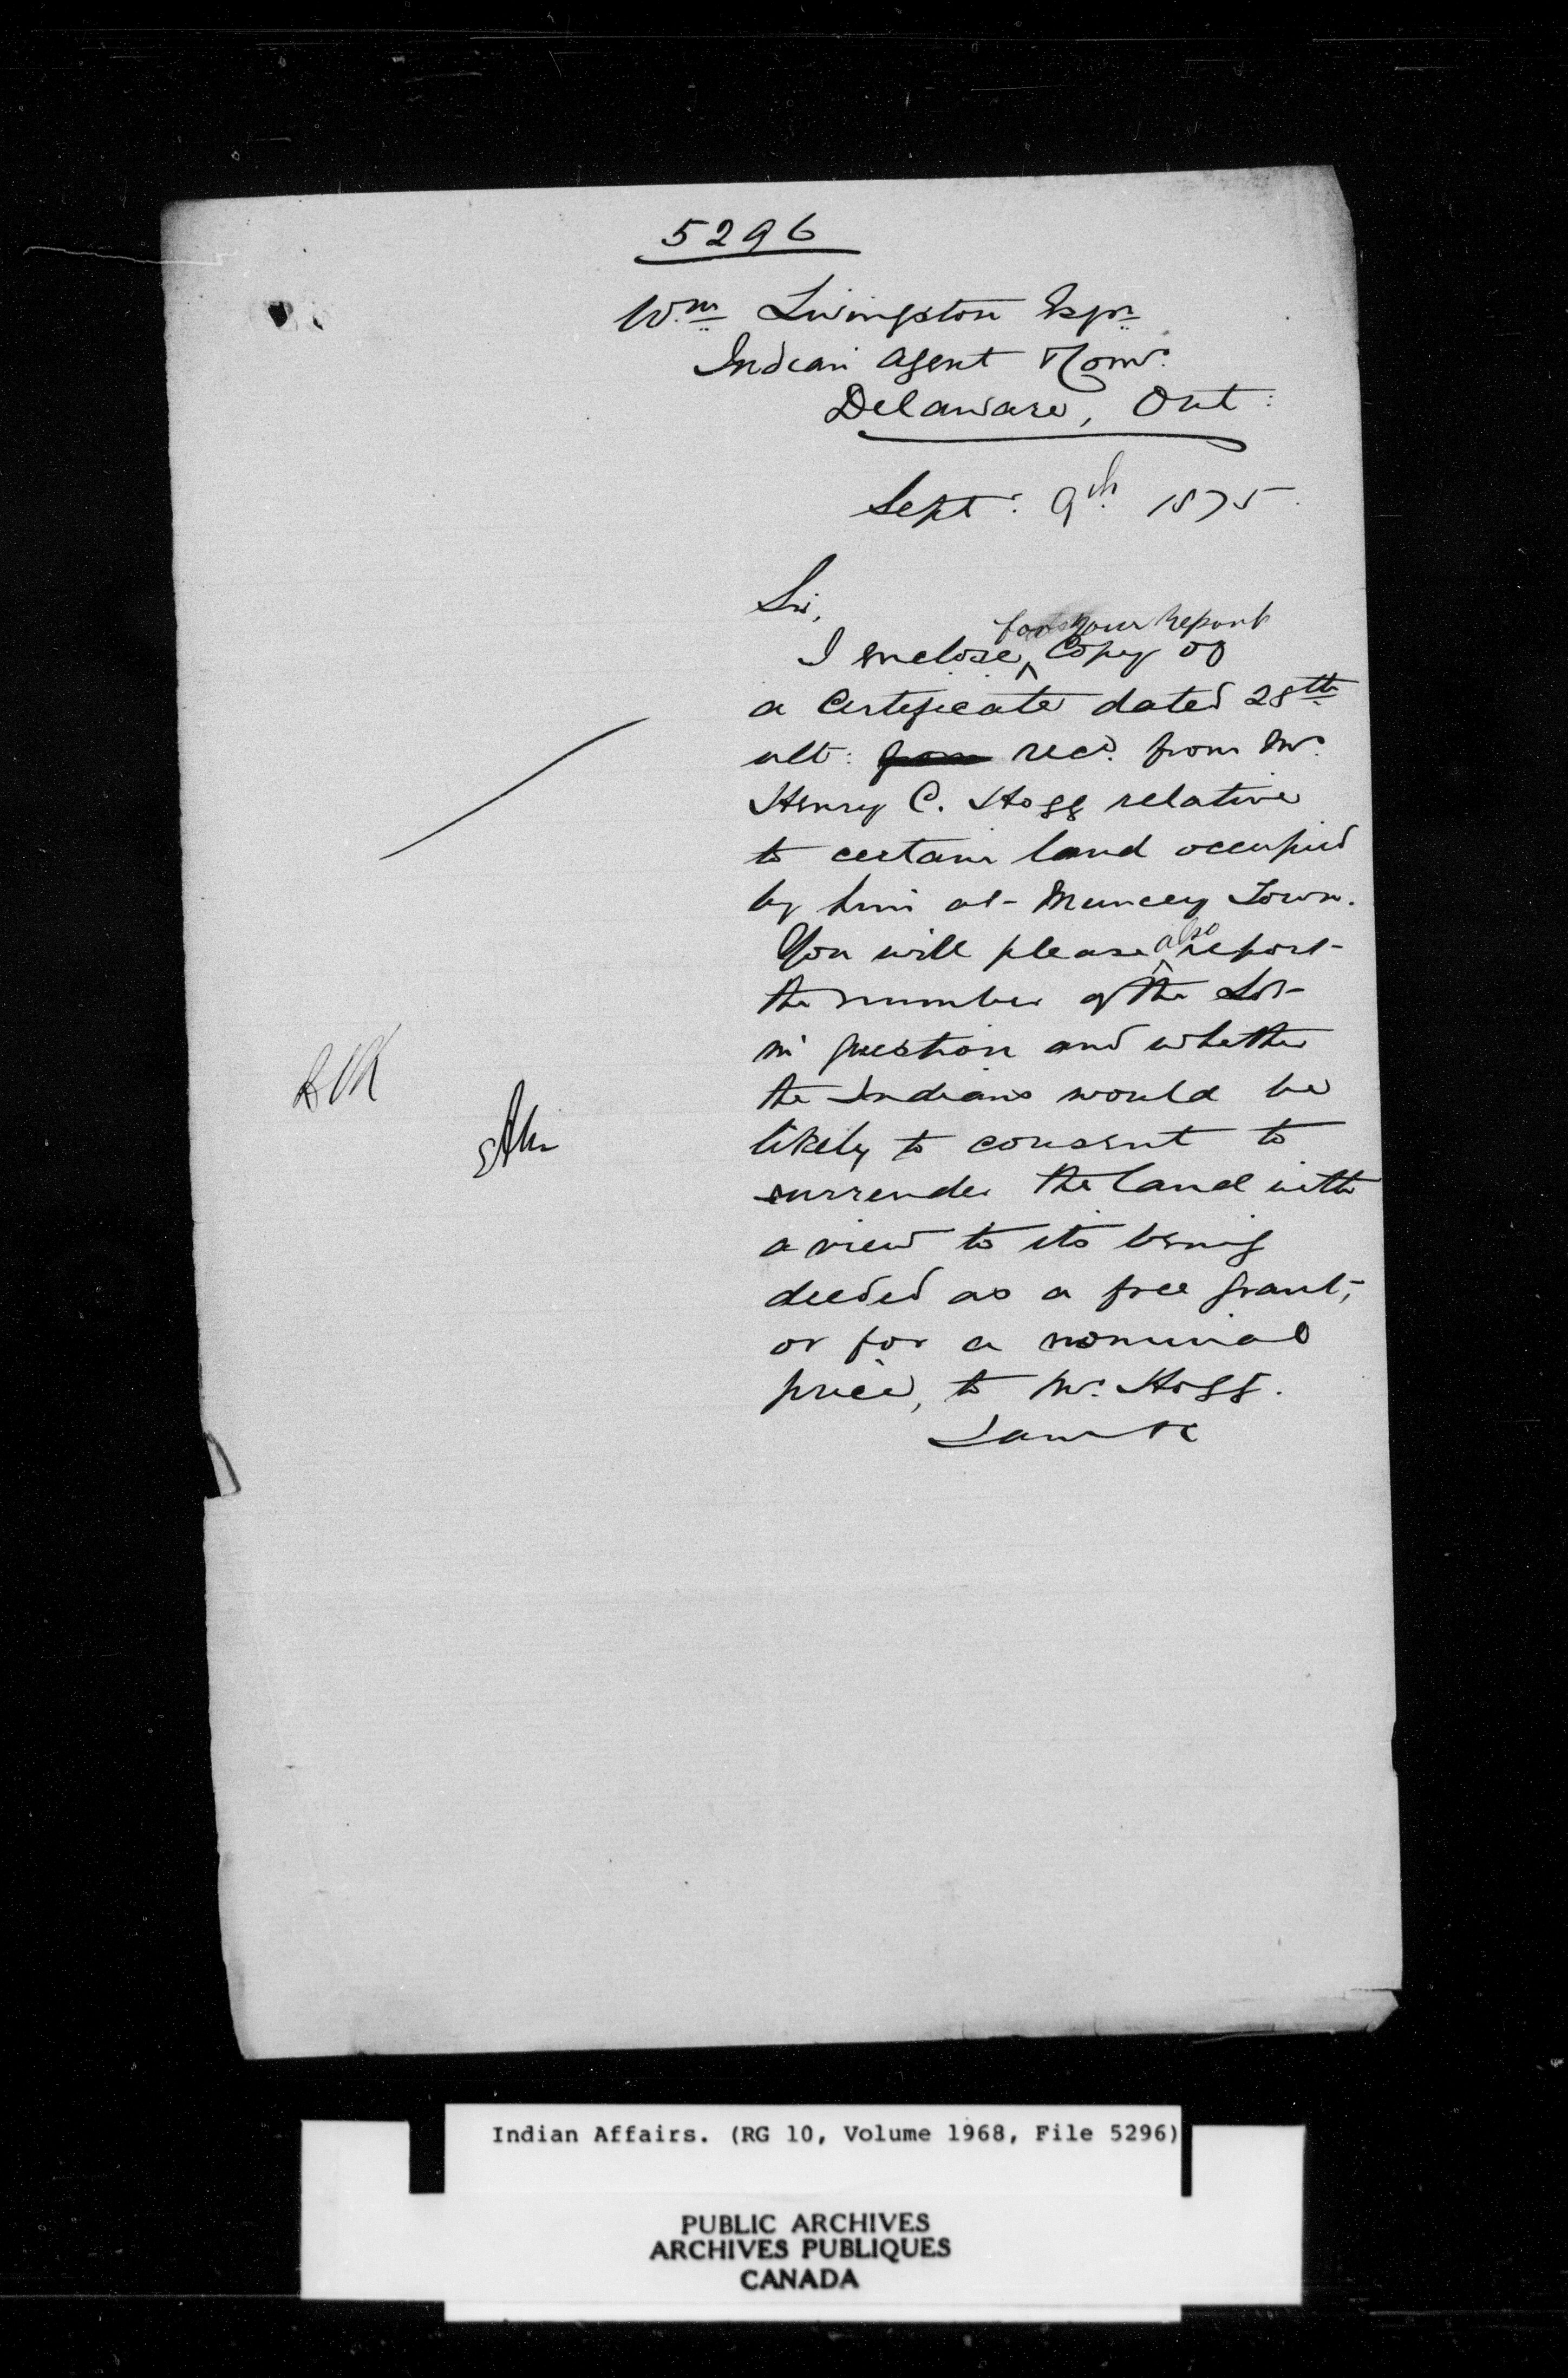 5296
Wm Livingston Esqr
Indian Agent
Delaware, Ont:
Sept: 9th 1875.
Sir,
for your report
I enclose ^ copy of
a Certificate dated 28th
ult: from recd. from Mr.
Henry C. Hogg relative
to certain land occupied
by him at Muncey Town.
also
You will please ^ report
the number of the Lot
in question and whether
the Indians would be
likely to consent to
surrender the land with
a view to its being
deeded as a free grant,
or for a nominal
price, to Mr. Hogg.
I am &c
Indian Affairs. (RG 10, Volume 1968, File 5296)
PUBLIC ARCHIVES
ARCHIVES PUBLIQUES
CANADA